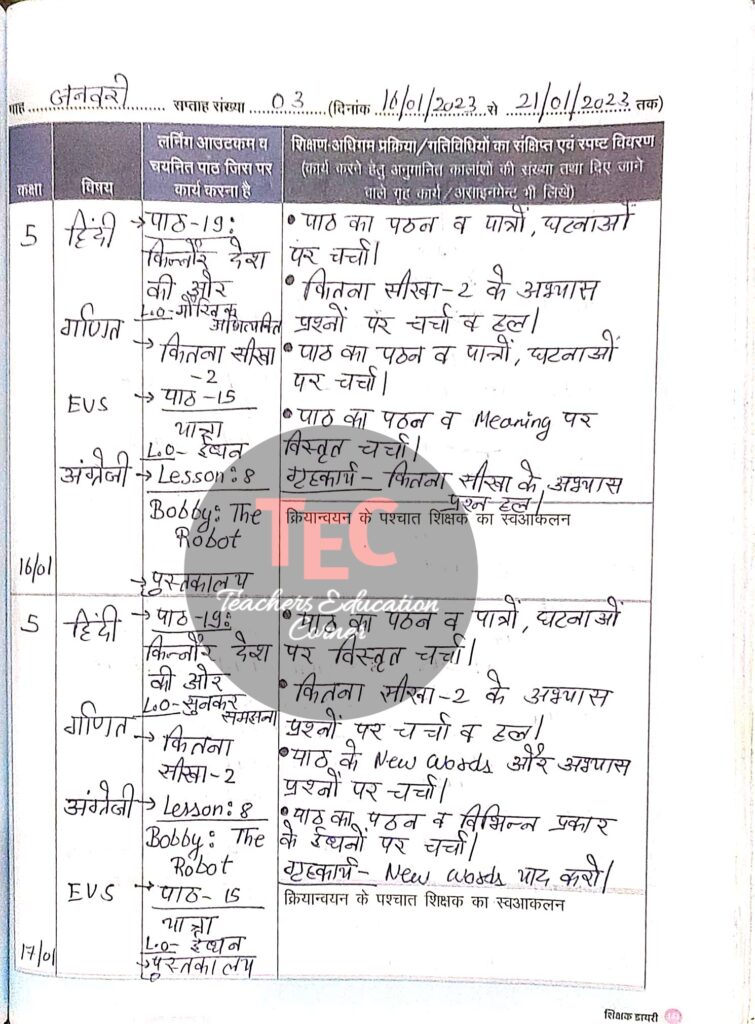 माह जनवरी सप्ताह संख्या 03 (दिनांक 16/01/2023 से 21/01/2023 तक)
कक्षा
विषय
लर्निंग आउटकम व
चयनित पाठ जिस पर
कार्य करना है
शिक्षण-अधिगम प्रक्रिया/गतिविधियों का संक्षिप्त एवं स्पष्ट विवरण
(कार्य करने हेतु अनुमानित कालांशों की संख्या तथा दिए जाने
वाले गृह कार्य/असाइनमेन्ट भी लिखें)
5
हिंदी
→ पाठ-19:
किन्नौर देश
की और
L.O-मौखिक
गणित
→ कितना सीखा
-2
EVS
→ पाठ-15
यात्रा
L.O- ईंधन
अंग्रेजी
→ Lesson: 8
Bobby: The
Robot
→ पुस्तकालय
16/01
• पाठ का पठन व पात्रों, घटनाओं
पर चर्चा।
• कितना सीखा-2 के अभ्यास
प्रश्नों पर चर्चा व हल।
• पाठ का पठन व पात्रों, घटनाओं
पर चर्चा।
• पाठ का पठन व Meaning पर
विस्तृत चर्चा।
गृहकार्य - कितना सीखा के अभ्यास
प्रश्न हल।
क्रियान्वयन के पश्चात शिक्षक का स्वआकलन
TEC
Teachers Education
Corner
5
हिंदी
→ पाठ-19:
किन्नौर देश
की और
L.O-सुनकर
समझना
गणित
→ कितना
सीखा-2
अंग्रेजी
→ Lesson: 8
Bobby: The
Robot
EVS
→ पाठ-15
यात्रा
L.O- ईंधन
→ पुस्तकालय
17/01
• पाठ का पठन व पात्रों, घटनाओं
पर विस्तृत चर्चा।
• कितना सीखा-2 के अभ्यास
प्रश्नों पर चर्चा व हल।
• पाठ के New words और अभ्यास
प्रश्नों पर चर्चा।
• पाठ का पठन व विभिन्न प्रकार
के ईंधनों पर चर्चा।
गृहकार्य- New words याद करो।
क्रियान्वयन के पश्चात शिक्षक का स्वआकलन
शिक्षक डायरी